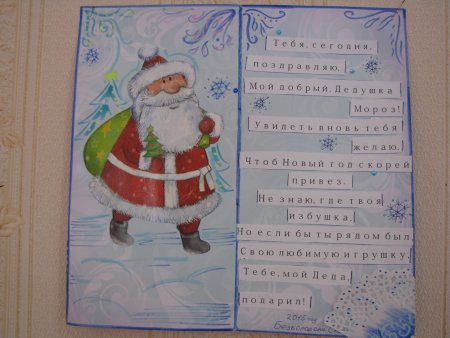 Тебя, сегодня,
поздравляю,
Мой добрый, Дедушка
Мороз!
Увидеть вновь тебя
желаю,
Чтоб Новый год скорей
привез.
Не знаю, где твоя
избушка,
Но если бы ты рядом был,
Свою любимую игрушку,
Тебе, мой Деда,
подарил!